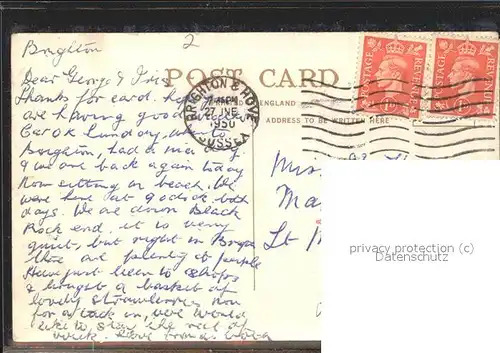 Brighton
2
Dear George & Iris
POST CARD
Thanks for card. hope you
are having good
to
Brighton, had a
& we are back again today
now sitting on beach. We
were here at 9 o'clock both
days. We are down Black
Rock end, it is very
quiet, but right in Brighton
there are plenty of people
Have just been to shops
& bought a basket of
lovely strawberries now
for attack in, we would
like to stay the rest of
week. Love from
BRIGHTON & HOVE
27 JNE
1950
SUSSEX
ENGLAND
ADDRESS TO BE WRITTEN HERE
POSTAGE REVENUE
POSTAGE REVENUE
Miss
privacy protection (c)
Datenschutz